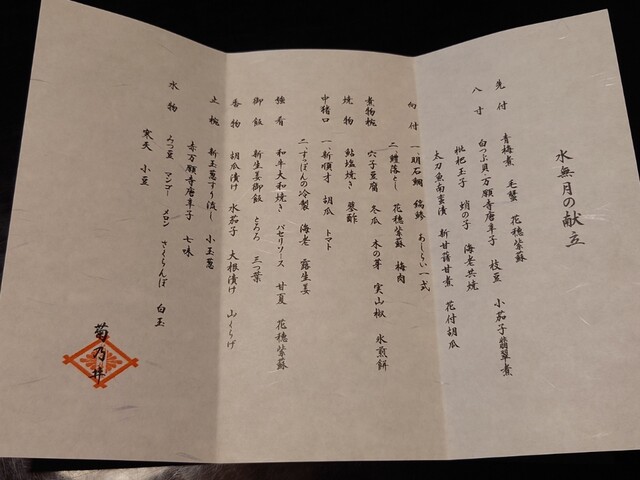 水無月の献立
先付 青梅煮 毛蟹 花穂紫蘇
八寸 白つぶ貝・万願寺唐辛子 枝豆 小茄子翡翠煮
枇杷玉子 蛸の子 海老共焼
太刀魚南蛮漬 新甘藷甘煮 花付胡瓜
向付 一、明石鯛 縞鯵 あしらい一式
二、鱧落とし 花穂紫蘇 梅肉
煮物椀 穴子豆腐 冬瓜 木の芽 実山椒 氷煎餅
焼物 鮎塩焼き 蓼酢
中猪口 一、新順才 胡瓜 トマト
二、すっぽんの冷製 海老 露生姜
強肴 和牛大和焼き パセリソース 甘夏 花穂紫蘇
御飯 新生姜御飯 とろろ 三つ葉
香物 胡瓜漬け 水茄子 大根漬け 山くらげ
止椀 新玉葱すり流し 小玉葱
赤万願寺唐辛子 七味
水物 みつ豆 マンゴー メロン さくらんぼ 白玉
寒天 小豆
菊乃井